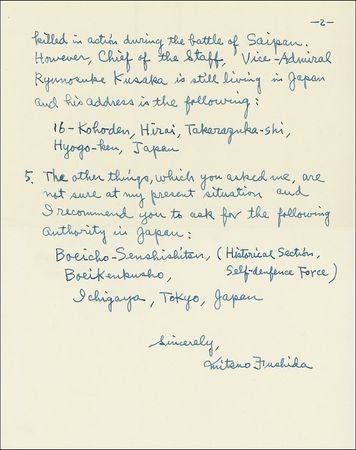 —2—
killed in action during the battle of Saipan.
However, Chief of the Staff, Vice-Admiral
Ryunosuke Kusaka is still living in Japan
and his address is the following:
16-Kohoden, Hirai, Takarazuka-shi,
Hyogo-ken, Japan
5. The other things, which you asked me, are
not sure at my present situation and
I recommend you to ask for the following
authority in Japan:
Boeicho-Senshishitsu, (Historical Section,
Boeikenkusho, Self-defence Force)
Ichigaya, Tokyo, Japan
Sincerely,
Mitsuo Fuchida